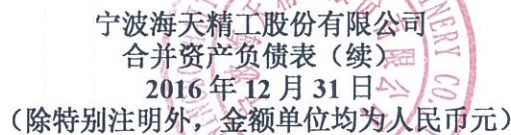 宁波海天精工股份有限公司
合并资产负债表(续)
2016年12月31日
(除特别注明外,金额单位均为人民币元)